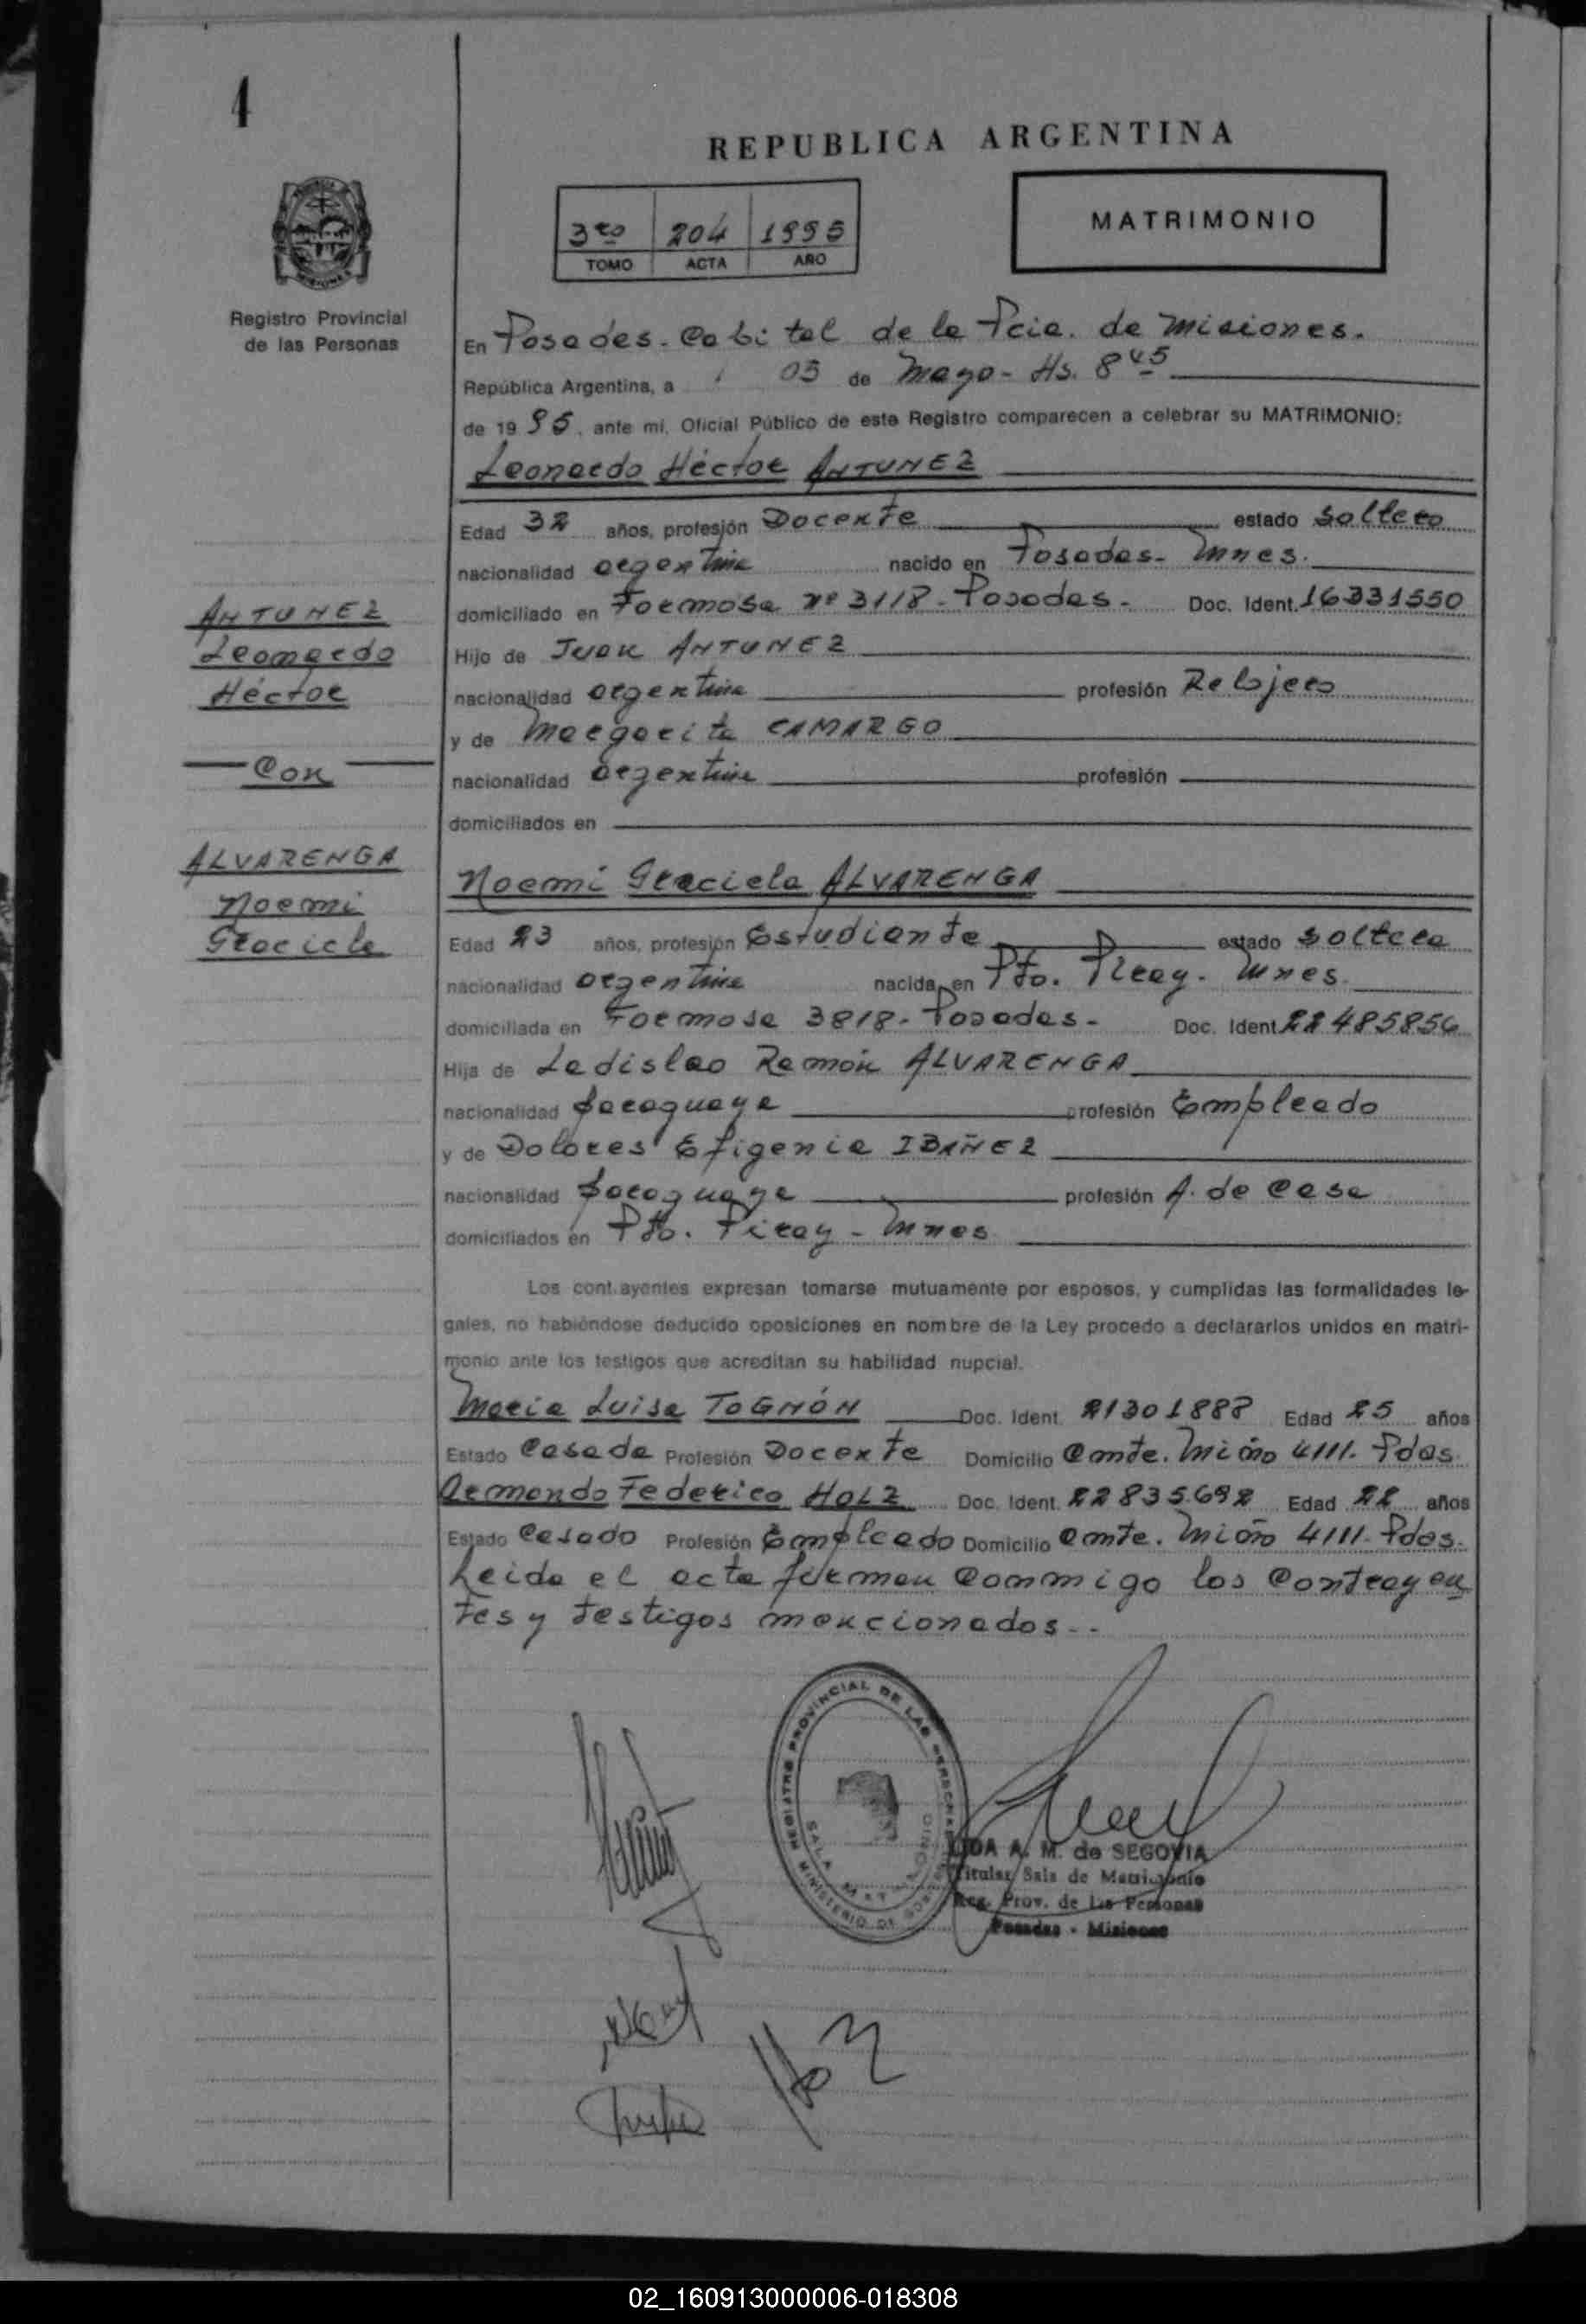 4
REPUBLICA ARGENTINA
3ro 204 1995
TOMO ACTA AÑO
MATRIMONIO
Registro Provincial
de las Personas
En Posadas. Capital de la Pcia. de Misiones.
República Argentina, a 03 de Mayo - Hs. 8 45
de 1995, ante mí, Oficial Público de este Registro comparecen a celebrar su MATRIMONIO:
Leonardo Héctor ANTUNEZ
Edad 32 años, profesión Docente estado Soltero
nacionalidad argentina nacido en Posadas - Mnes.
domiciliado en Formosa nº 3118 - Posadas - Doc. Ident. 16331550
Hijo de Juan ANTUNEZ
nacionalidad argentina profesión Relojero
y de Margarita CAMARGO
nacionalidad argentina profesión
domiciliados en
ANTUNEZ
Leonardo
Héctor
Con
ALVARENGA
Noemi
Graciela
Noemi Graciela ALVARENGA
Edad 23 años, profesión Estudiante estado Soltera
nacionalidad argentina nacida en Pto. Piray - Mnes.
domiciliada en Formosa 3818 - Posadas - Doc. Ident. 22485856
Hija de Ladislao Ramón ALVARENGA
nacionalidad paraguaya profesión Empleado
y de Dolores Efigenia IBAÑEZ
nacionalidad paraguaya profesión A. de Casa
domiciliados en Pto. Piray - Mnes
Los contrayentes expresan tomarse mutuamente por esposos, y cumplidas las formalidades le-
gales, no habiéndose deducido oposiciones en nombre de la Ley procedo a declararlos unidos en matri-
monio ante los testigos que acreditan su habilidad nupcial.
Maria Luisa TOGNÓN Doc. Ident. 21301888 Edad 25 años
Estado Casada Profesión Docente Domicilio Cmte. Miño 4111. Pdas.
Armando Federico HOLZ Doc. Ident. 22835692 Edad 22 años
Estado Casado Profesión Empleado Domicilio Cmte. Miño 4111. Pdas.
Leida el acta firman conmmigo los contrayen
tes y testigos mencionados - -
REGISTRO PROVINCIAL DE LAS PERSONAS
MINISTERIO DE
SALA
LIDA A. M. de SEGOVIA
Titular Sala de Matrimonio
Reg. Prov. de las Personas
Posadas - Misiones
02_160913000006-018308